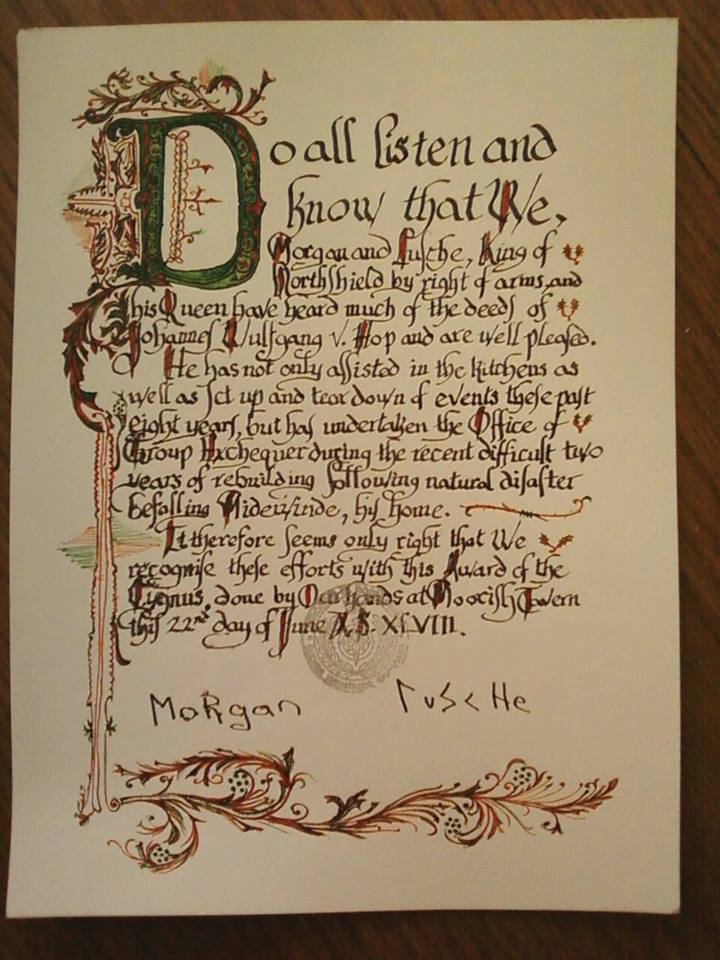 Do all listen and
know that We,
Morgan and Lusche, King of
Northshield by right of arms, and
his Queen have heard much of the deeds of
Johannes Wulfgang v. Hop and are well pleased.
He has not only assisted in the kitchens as
well as set up and tear down of events these past
eight years, but has undertaken the Office of
Group Exchequer during the recent difficult two
years of rebuilding following natural disaster
befalling Niderwinde, his home.
It therefore seems only right that We
recognise these efforts with this Award of the
Cygnus, done by Our hands at Moorish Tavern
this 22nd day of June A.S. XLVIII.
MoRgan LuScHe